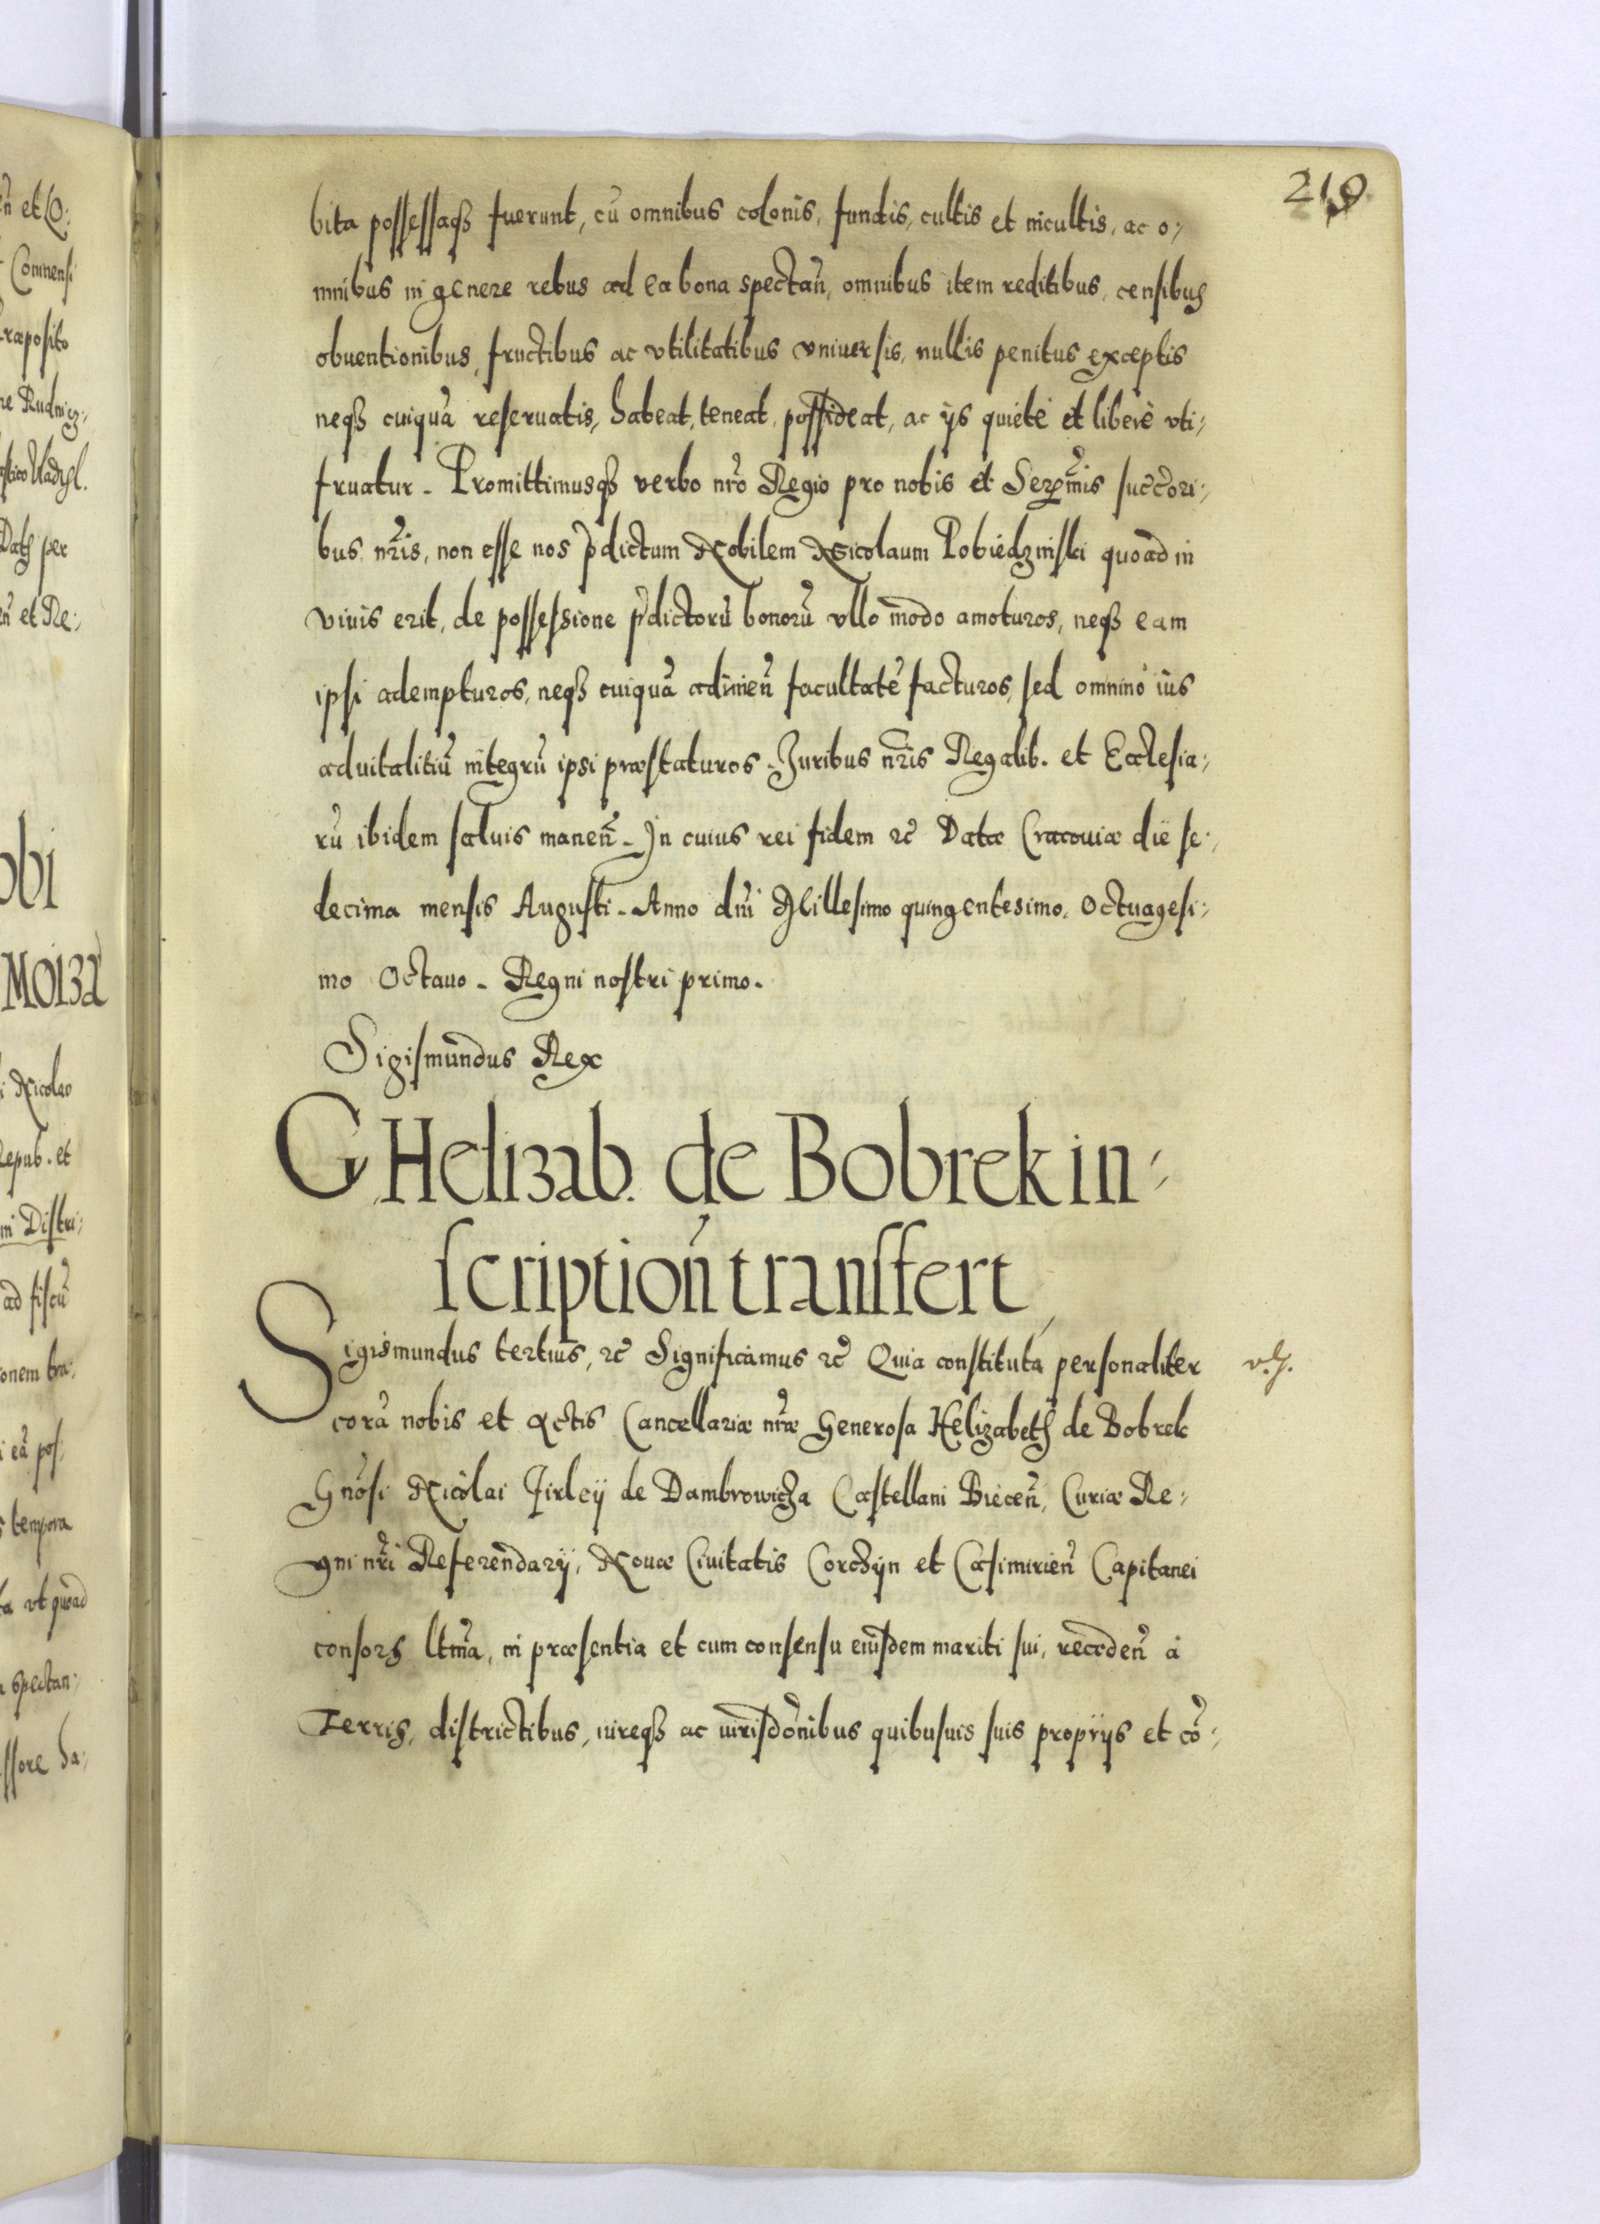 219.
bita possessaqȝ fuerunt, cū omnibus colonis, fundis, cultis et incultis, ac o⸗
mnibus in genere rebus ad ea bona spectan̄, omnibus item reditibus, censibus
obuentionibus, fructibus ac vtilitatibus vniuersis, nullis penitus exceptis
neqȝ cuiquā reseruatis, habeat, teneat, possideat, ac ijs quietè et liberè vti⸗
fruatur. Promittimusqȝ verbo nr̄o Regio pro nobis et Serm̄is succ̄ori⸗
bus nr̄is, non esse nos p̄dictum Nobilem Nicolaum Pobiedzinski quoad in
viuis erit, de possessione p̄dictorū bonorū vllo modo amoturos, neqȝ eam
ipsi adempturos, neqȝ cuiquā adimen̄ facultatē facturos, sed omnino ius
aduitalitiū integrū ipsi præstaturos. Juribus nr̄is Regalib. et Ecclesia⸗
rū ibidem saluis manen̄. In cuius rei fidem ꝛc̄ Data Cracouiæ die se⸗
decima mensis Augusti. Anno dn̄i Millesimo quingentesimo, Octuagesi⸗
mo Octauo. Regni nostri primo.
Sigismundus Rex
G Helizab. de Bobrek in⸗
scription̄ transfert
Sigismundus tertius, ꝛc̄ Significamus ꝛc̄ Quia constituta personaliter
corā nobis et Actis Cancellariæ nr̄æ Generosa Helizabeth de Bobrek
Gnōsi Nicolai Firleij de Dambrowicza Castellani Biecen̄, Curiæ Re⸗
gni nr̄i Referendarij, Nouæ Ciuitatis Corchijn et Casimirien̄ Capitanei
consors ltm̄a, in præsentia et cum consensu eiusdem mariti sui, receden̄ à
Terris, districtibus, iureqȝ ac iurisdōnibus quibusuis suis proprijs et cō⸗